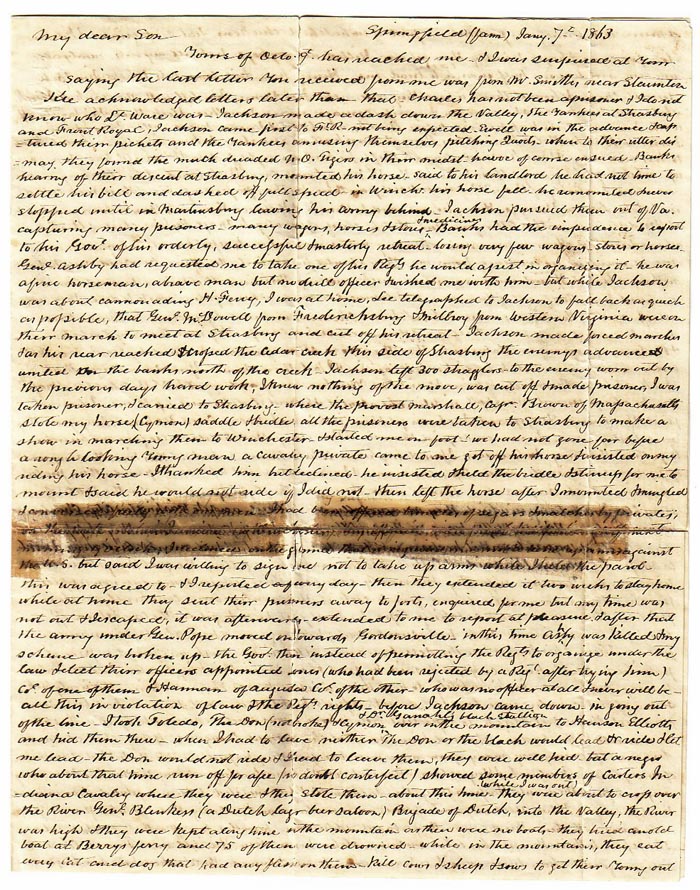 My dear Son Springfield (farm) Jany. 7th 1863
Yours of Octo. 9 has reached me & I was surprised at Your
saying the last letter You received from me was from W. Smiths near Staunton
acknowledged letters later than that Charles has not been a prisoner I do not
Know who Lt. Ware was - Jackson made a dash down the Valley, the Yankees at Strasburg
and Front Royal, Jackson came first to F.R. not being expected. Ewell was in the advance & cap
=tured their pickets and the Yankees amusing themselves pitching Quoits when to their utter dis
=may they found the much dreaded N.O. Tigers in their midst - havoc of course ensued. Banks
hearing of their descent at Strasburg, mounted his horse, said to his landlord he had not time to
settle his bill and dashed off full speed - in Winchr. his horse fell he remounted & never
stopped until in Martinsburg leaving his army behind - Jackson pursued them out of Va.
capturing many prisoners - many wagons, horses & stores, medicines Banks had the impudence to report
to his Govt. of his orderly, successful & masterly retreat - losing very few wagons stores or horses.
Genl. Ashby had requested me to take one of his Regts he would assist in organizing it - he was
a fine horseman, a brave man but no drill officer & wished me with him - but while Jackson
was about cannonading H. Ferry, I was at home, Lee telegraphed to Jackson to fall back as quick
as possible, that Genl. McDowell from Fredericksburg & Milroy from Western Virginia were on
their march to meet at Strasburg and cut off his retreat - Jackson made forced marches
& as his rear reached & crossed the Cedar creek this side of Strasburg the enemys advance
united on the banks north of the creek - Jackson left 300 stragglers to the enemy worn out by
the previous days hard work, I knew nothing of the move, was cut off & made prisoner, I was
taken prisoner, & carried to Strasburg - where the provost marshall, Capt. Brown of Massachusetts
stole my horse (Cymon) saddle & bridle all the prisoners were taken to Strasburg to make a
show in marching them to Winchester - & started me on foot! we had not gone far before
a rough looking Young man a Cavalry private came to me got off his horse & insisted on my
riding his horse - I thanked him but declined - he insisted & held the bridle & stirrup for me to
mount & said he would not ride if I did not - then left the horse after I mounted & mingled
I had been offered segars by privates,
against
the U.S. but said I was willing to sign one not to take up arms while I held the parol -
this was agreed to - & I reported every day - then they extended it two weeks to stay home
while at home they sent their prisoners away to forts, enquired for me but my time was
not out & I escaped, it was afterwards extended to me to report at pleasure & after that
the army under Gen. Pope moved on towards Gordonsville - in this time Ashby was Killed & my
scheme was broken up - the Govt. then instead of permitting the Regts to organize under the
law & elect their officers appointed ones (who had been rejected by a Regt. after trying him)
Col. of one of them & Harman of Augusta Co. of the other - who was no officer at all & never will be -
all this in violation of law & the Regts rights - before Jackson came down in going out
of the line - I took Toledo, The Don (not broke) & Cymon & Dr. Ganahl's black stallion over in the mountain to Hanson Elliotts
and hid them there - when I had to leave neither The Don or the black would lead & ride & let
me lead - the Don would not ride & I had to leave them, they were well hid but a negro
who about that time run off for a few (no doubt counterfeit) showed some members of Carters In
=diana Cavalry where they were & they stole them - about this time (while I was out) - They were about to cross over
the River Genl. Blenkers (a Dutch lager beer saloon) Brigade of Dutch, into the Valley, the River
was high & they were kept a long time in the mountain as there were no boats - they hired an old
boat at Berrys ferry and 75 of them were drowned - while in the mountains, they eat
every cat and dog that had any flesh on them - Kill cows & sheep & sows to get their Young out